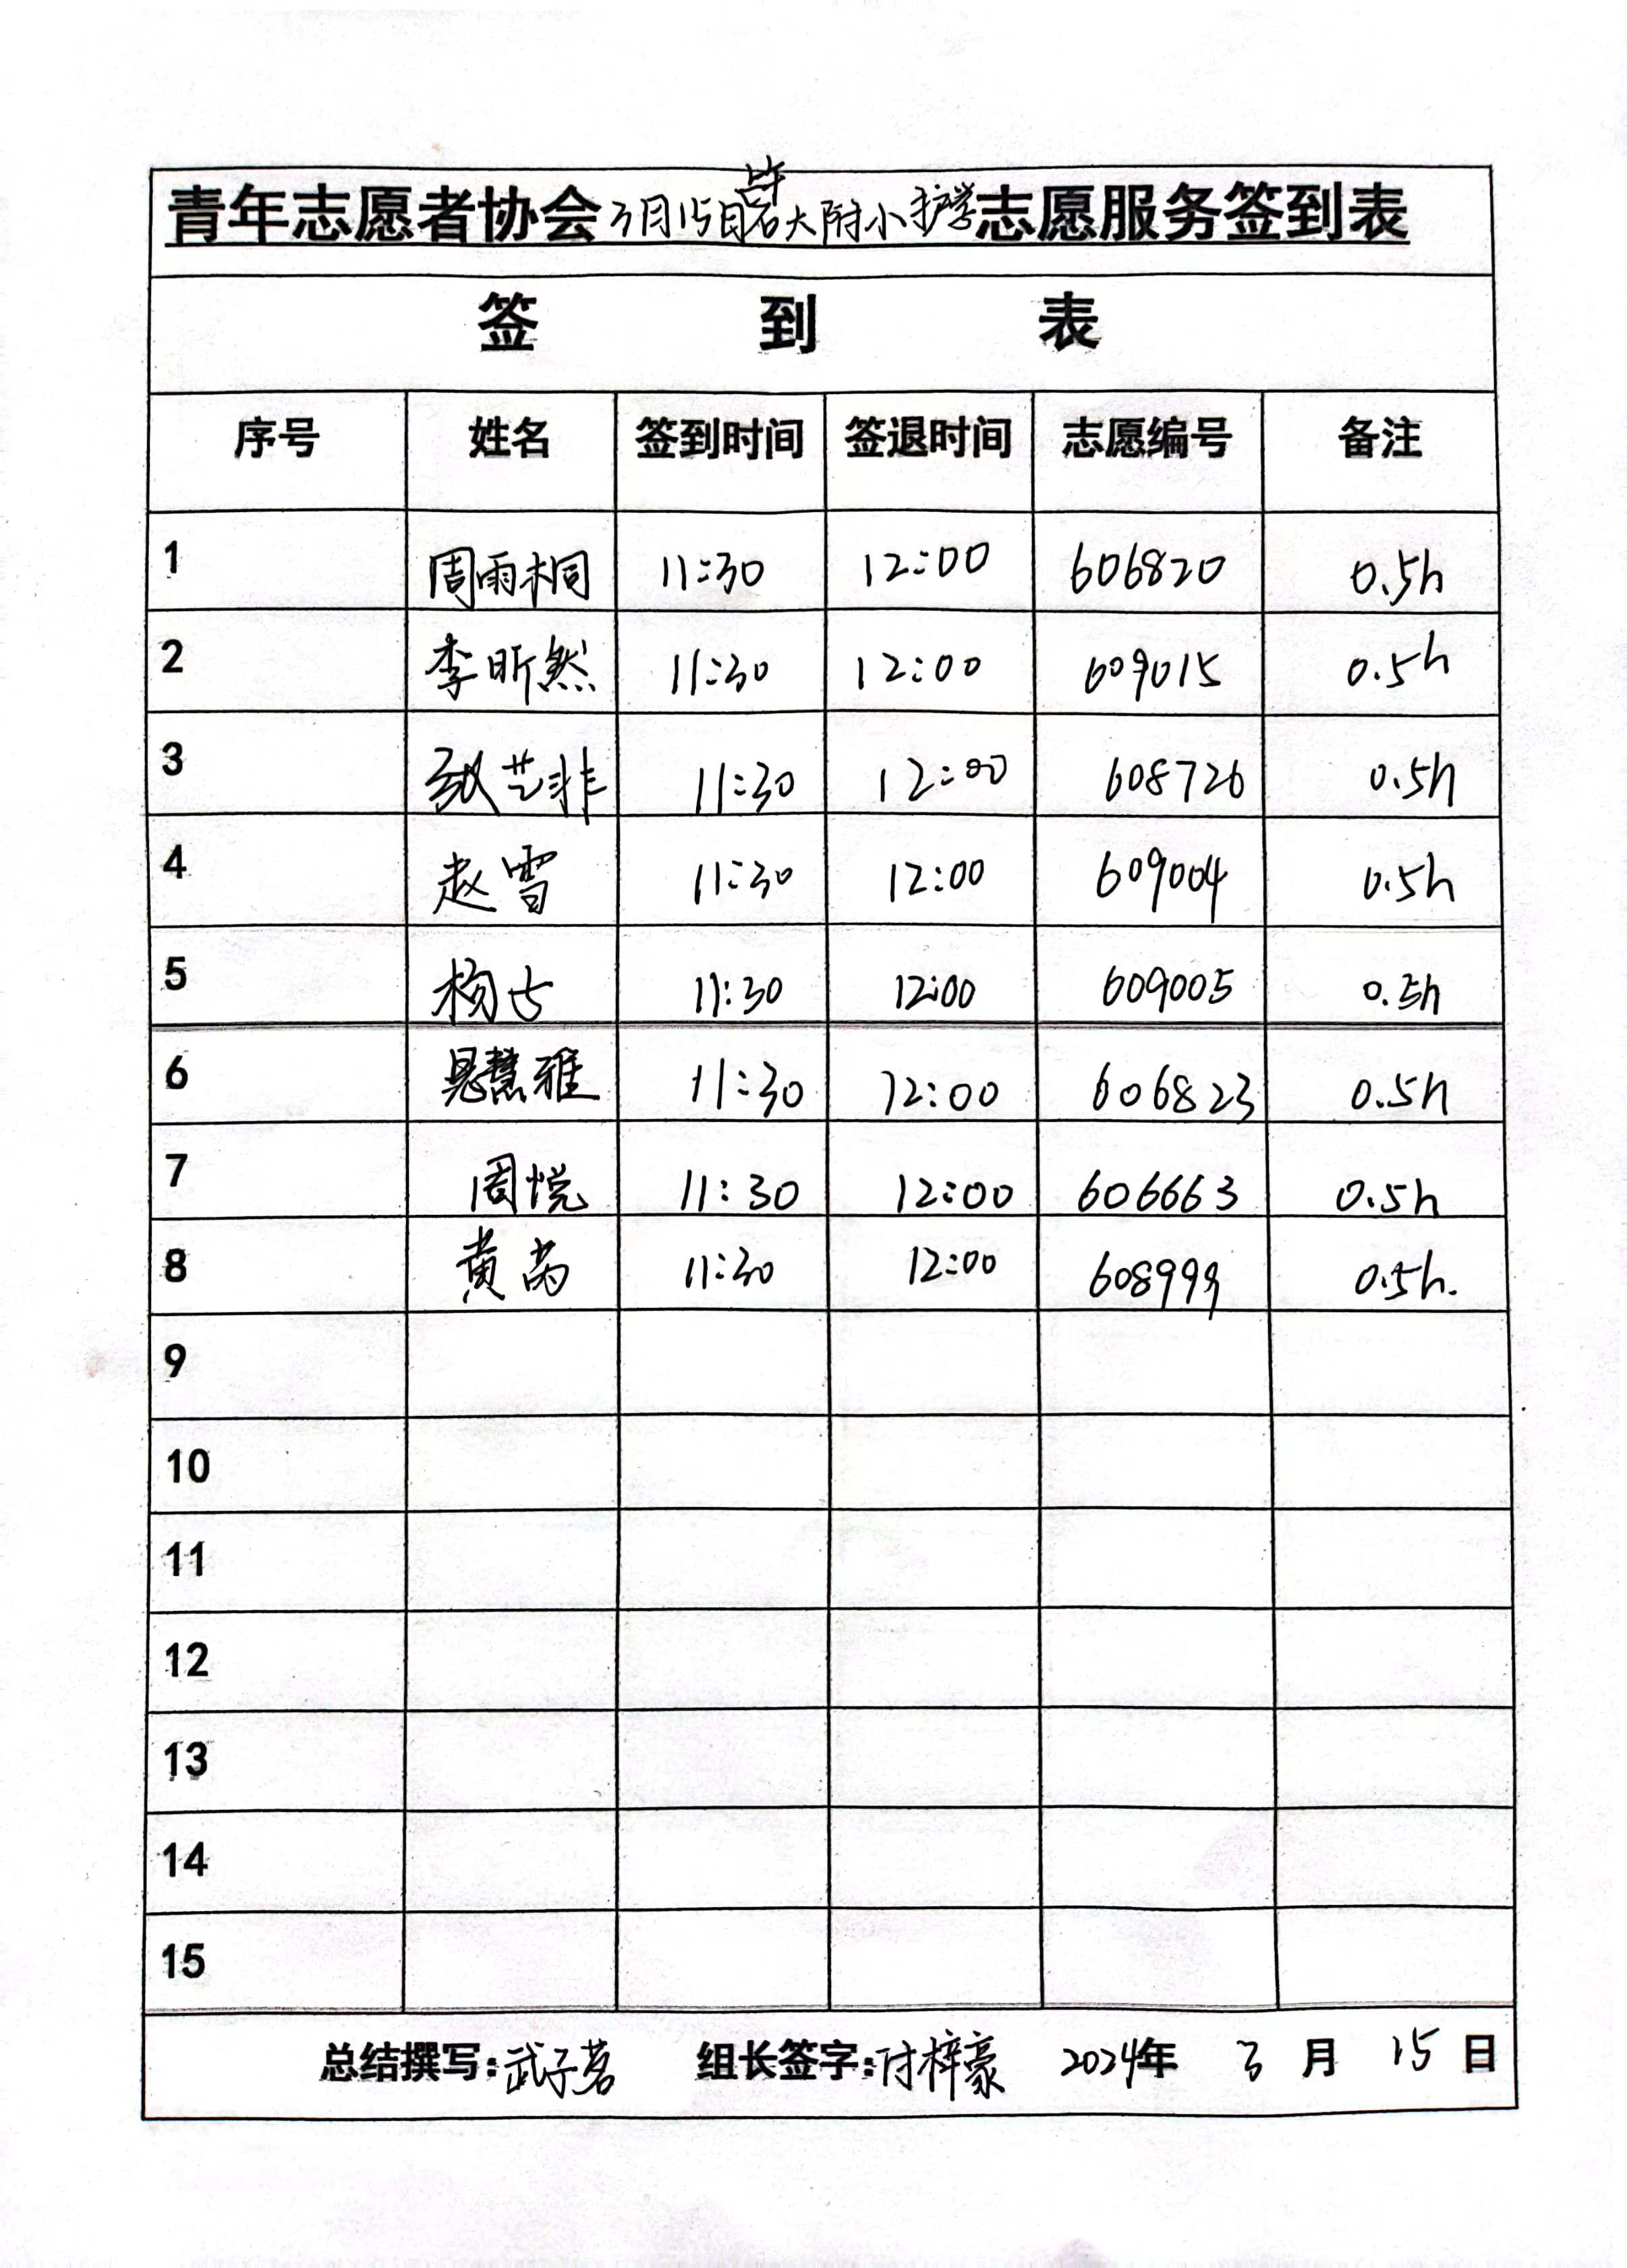 青年志愿者协会3月15日岩大附小护学志愿服务签到表
签 到 表
序号 姓名 签到时间 签退时间 志愿编号 备注
1 周雨桐 11:30 12:00 606820 0.5h
2 李昕然 11:30 12:00 609015 0.5h
3 艺非 11:30 12:00 608726 0.5h
4 赵雪 11:30 12:00 609004 0.5h
5 杨 11:30 12:00 609005 0.5h
6 慧雅 11:30 12:00 606823 0.5h
7 周悦 11:30 12:00 606663 0.5h
8 黄芮 11:30 12:00 608999 0.5h.
9
10
11
12
13
14
15
总结撰写:武子茗 组长签字:付梓豪 2024年 3 月 15 日